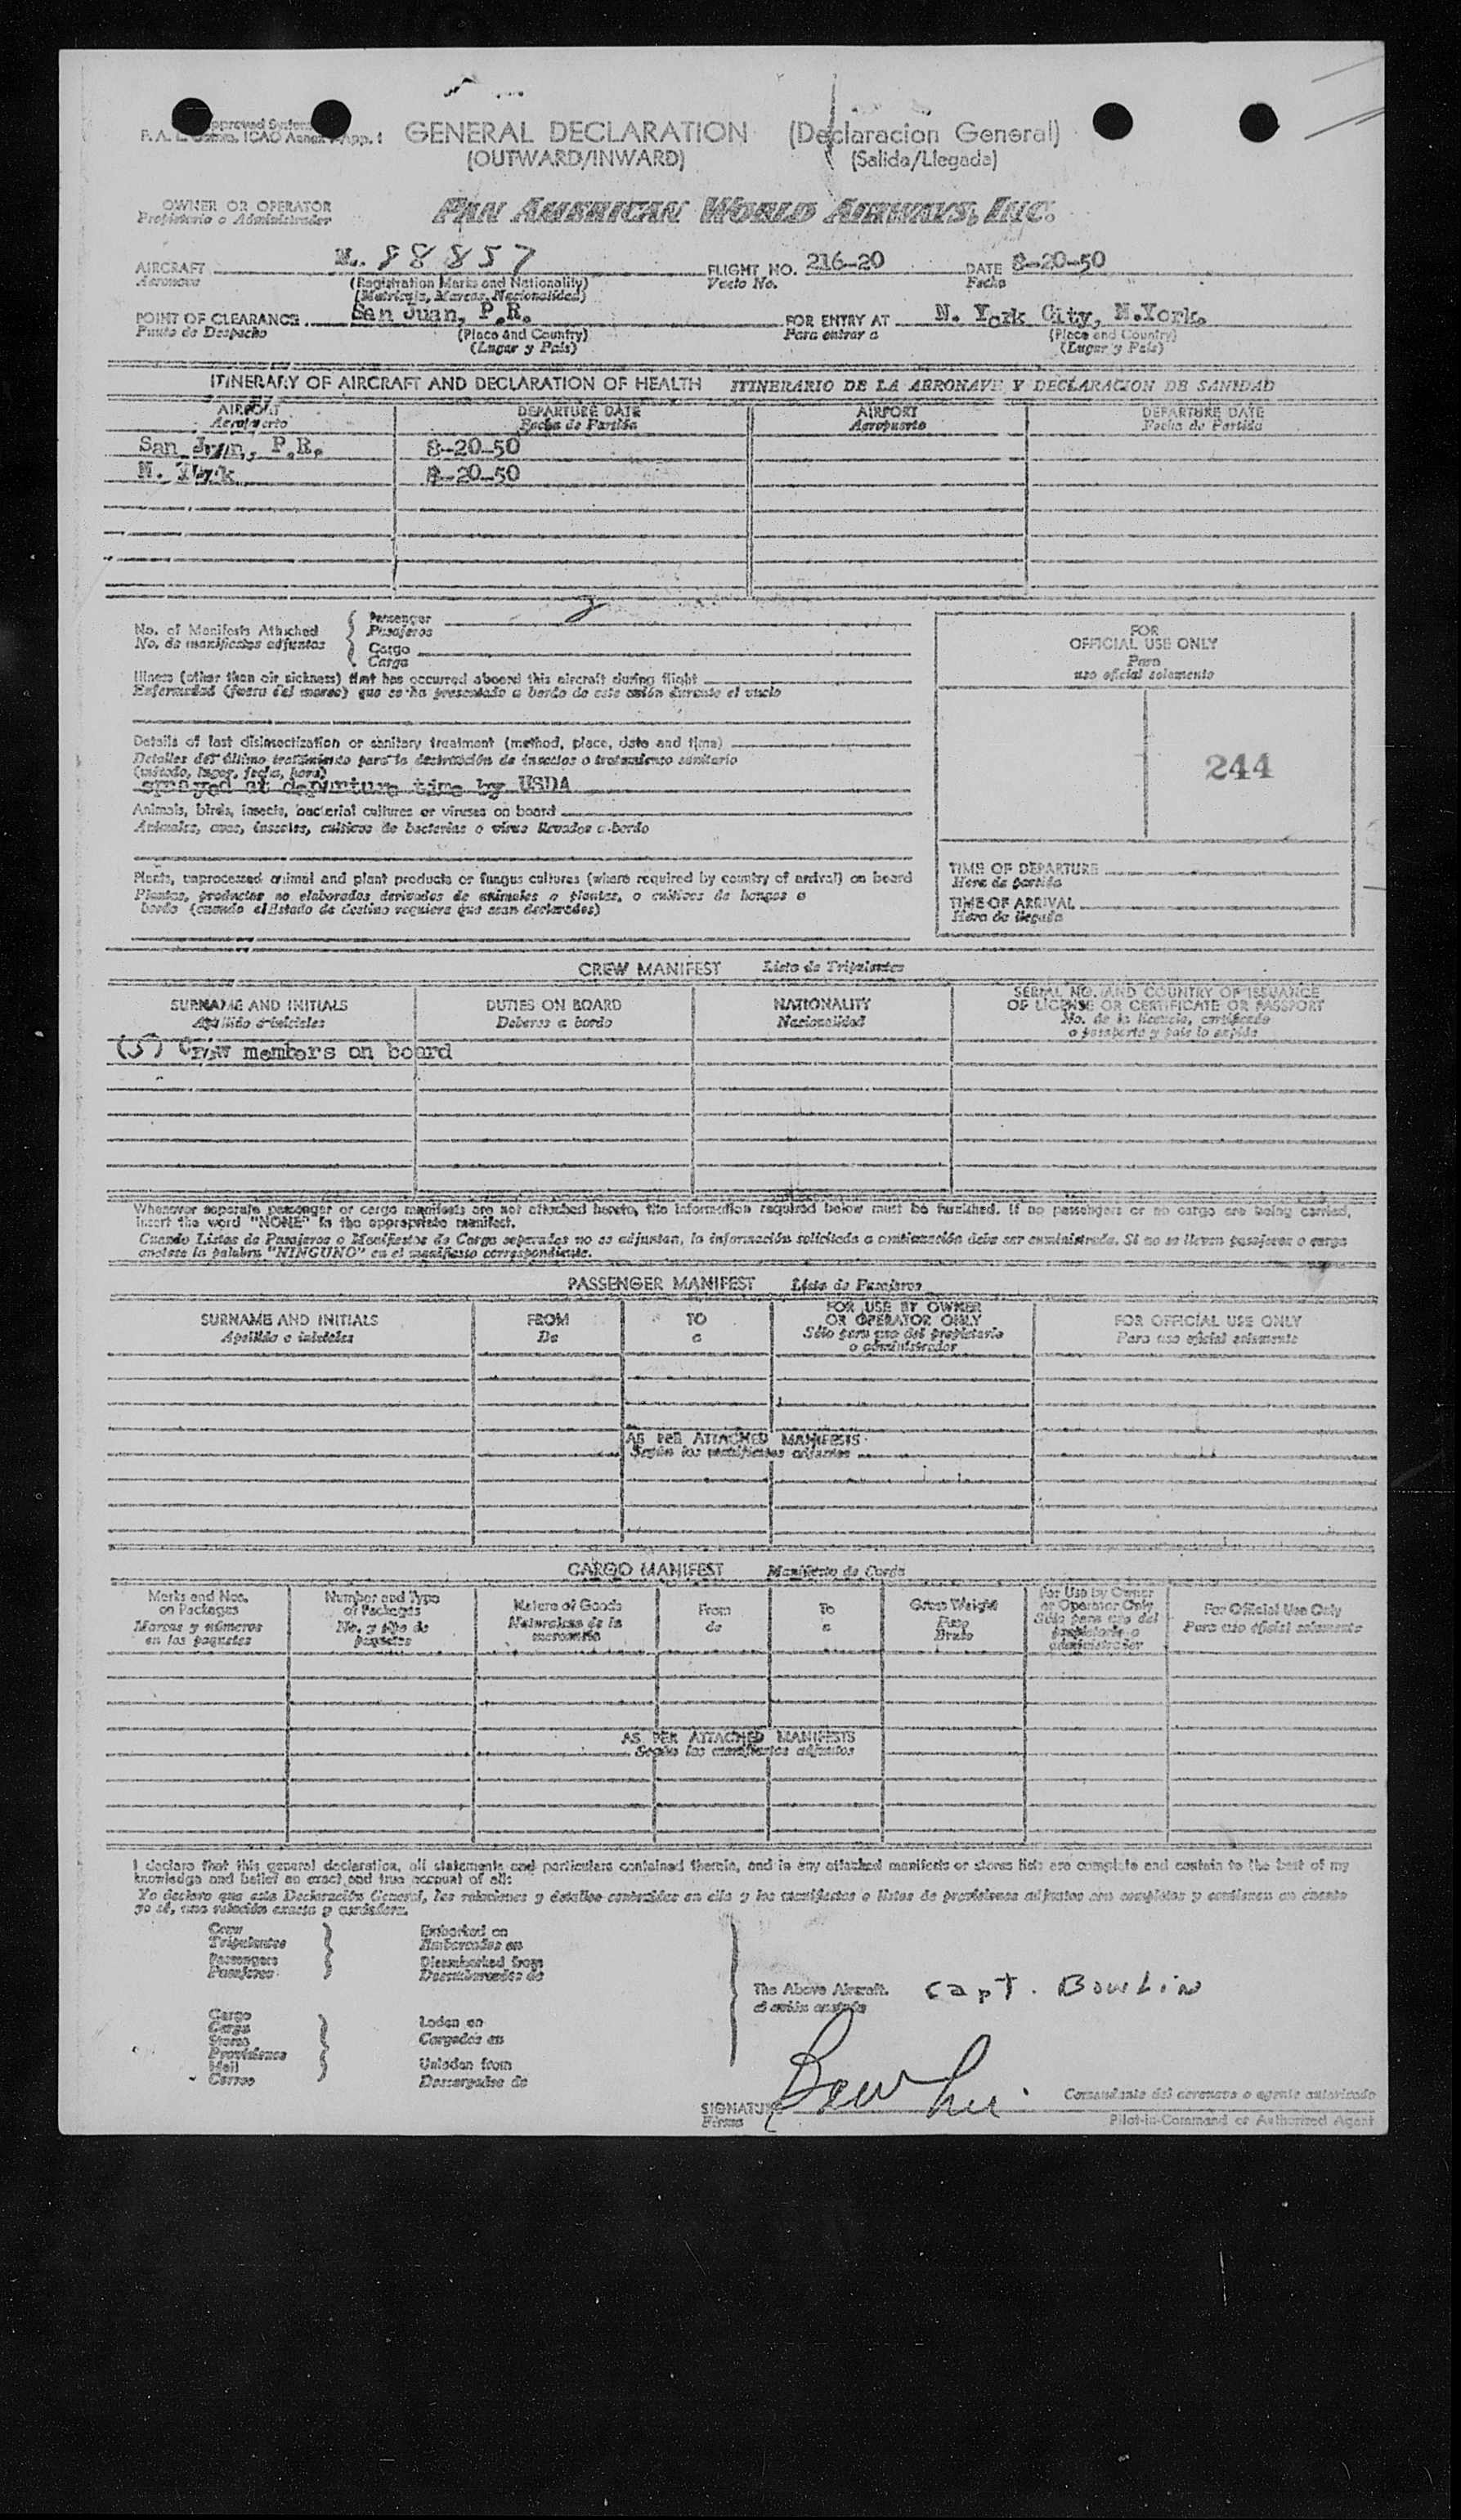 GENERAL DECLARATION (Declaracion General)
(OUTWARD/INWARD) (Salida/Llegada)
OWNER OR OPERATOR
Propietario o Administrador
PAN AMERICAN WORLD AIRWAYS, INC.
AIRCRAFT N. 88857 FLIGHT NO. 216-20 DATE 8-20-50
Aeronave Vuelo No. Fecha
(Registration Marks and Nationality)
(Matricula, Marcas, Nacionalidad)
POINT OF CLEARANCE San Juan, P.R. FOR ENTRY AT N. York City, N.York.
Punto de Despacho (Place and Country) Para entrar a (Place and Country)
(Lugar y Pais) (Lugar y Pais)
ITINERARY OF AIRCRAFT AND DECLARATION OF HEALTH ITINERARIO DE LA AERONAVE Y DECLARACION DE SANIDAD
AIRPORT DEPARTURE DATE AIRPORT DEPARTURE DATE
Aeropuerto Fecha de Partida Aeropuerto Fecha de Partida
San Juan, P.R. 8-20-50
N. York 8-20-50
No. of Manifests Attached
No. de manifiestos adjuntos
Passenger
Pasajeros
Cargo
Carga
Illness (other than air sickness) that has occurred aboard this aircraft during flight
Enfermedad (fuera del mareo) que se ha presentado a bordo de este avión durante el vuelo
Details of last disinsectization or sanitary treatment (method, place, date and time)
Detalles del último tratamiento para la destrucción de insectos o tratamiento sanitario
(método, lugar, fecha, hora)
sprayed at departure time by USDA
Animals, birds, insects, bacterial cultures or viruses on board
Animales, aves, insectos, cultivos de bacterias o virus llevados a bordo
Plants, unprocessed animal and plant products or fungus cultures (where required by country of arrival) on board
Plantas, productos no elaborados derivados de animales o plantas, o cultivos de hongos a
bordo (cuando el Estado de destino requiera que sean declarados)
FOR
OFFICIAL USE ONLY
Para
uso oficial solamente
244
TIME OF DEPARTURE
Hora de partida
TIME OF ARRIVAL
Hora de llegada
CREW MANIFEST Lista de Tripulantes
SURNAME AND INITIALS DUTIES ON BOARD NATIONALITY SERIAL NO. AND COUNTRY OF ISSUANCE
OF LICENSE OR CERTIFICATE OR PASSPORT
Apellido e iniciales Deberes a bordo Nacionalidad No. de la licencia, certificado
o pasaporte y pais lo expide
(5) Crew members on board
Whenever separate passenger or cargo manifests are not attached hereto, the information required below must be furnished. If no passengers or no cargo are being carried,
insert the word "NONE" in the appropriate manifest.
Cuando Listas de Pasajeros o Manifiestos de Carga separados no se adjuntan, la información solicitada a continuación debe ser suministrada. Si no se llevan pasajeros o carga
anótese la palabra "NINGUNO" en el manifiesto correspondiente.
PASSENGER MANIFEST Lista de Pasajeros
SURNAME AND INITIALS FROM TO FOR USE BY OWNER
OR OPERATOR ONLY FOR OFFICIAL USE ONLY
Apellido e iniciales De a Sólo para uso del propietario
o administrador Para uso oficial solamente
AS PER ATTACHED MANIFESTS
Según los manifiestos adjuntos
CARGO MANIFEST Manifiesto de Carga
Marks and Nos.
on Packages
Marcas y números
en los paquetes
Number and Type
of Packages
No. y tipo de
paquetes
Nature of Goods
Naturaleza de la
mercancía
From
de
To
a
Gross Weight
Peso
Bruto
For Use by Owner
or Operator Only
Sólo para uso del
propietario o
administrador
For Official Use Only
Para uso oficial solamente
AS PER ATTACHED MANIFESTS
Según los manifiestos adjuntos
I declare that this general declaration, all statements and particulars contained therein, and in any attached manifests or stores lists are complete and contain to the best of my
knowledge and belief an exact and true account of all:
Yo declaro que esta Declaración General, las relaciones y detalles contenidos en ella y los manifiestos o listas de provisiones adjuntos son completos y contienen en cuanto
yo sé, una relación exacta y verdadera.
Crew
Tripulantes
Passengers
Pasajeros
Embarked on
Embarcados en
Disembarked from
Desembarcados de
Cargo
Carga
Stores
Providiones
Mail
Correo
Laden on
Cargados en
Unladen from
Descargados de
The Above Aircraft. Capt. Bowlin
SIGNATURE Bowlin
Firma
Comandante del aeronave o agente autorizado
Pilot-in-Command or Authorized Agent